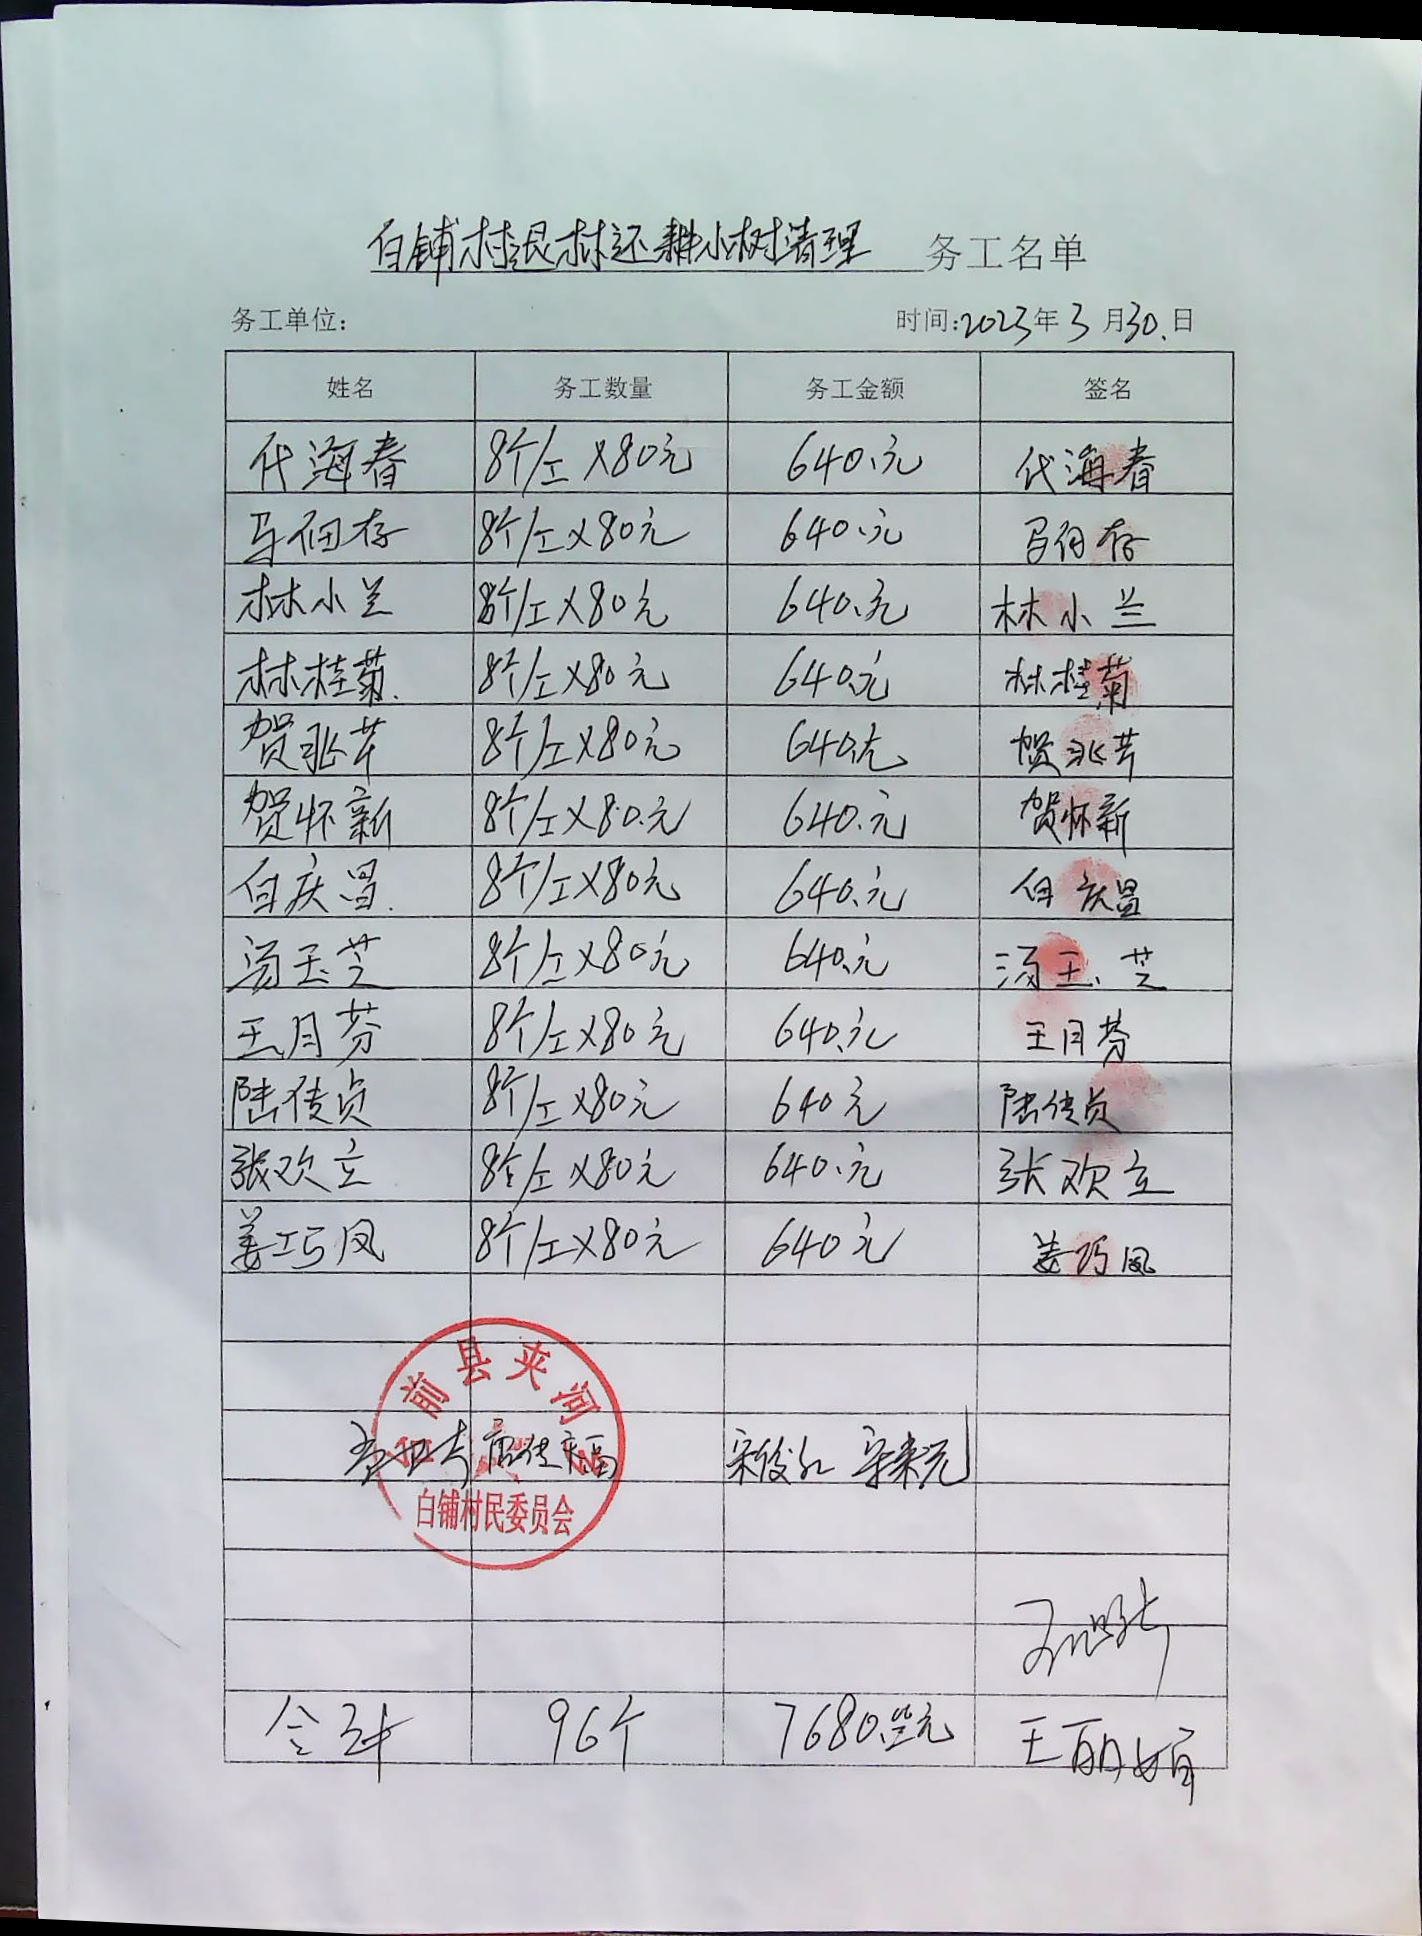 白铺村退林还耕小树清理 务工名单
务工单位: 时间:2023年3月30.日
姓名 务工数量 务工金额 签名
代海春 8个/工×80元 640.元 代海春
马佃存 8个/工×80元 640.元 马佃存
林小兰 8个/工×80元 640.元 林小兰
林桂菊. 8个/工×80元 640.元 林桂菊
贺兆芹 8个/工×80元 640元 贺兆芹
贺怀新 8个/工×80.元 640.元 贺怀新
白庆昌. 8个/工×80元 640.元 白庆昌
汤玉芝 8个/工×80元 640.元 汤玉芝
王月芬 8个/工×80元 640.元 王月芬
陆传贞 8个/工×80元 640元 陆传贞
张欢立 8个/工×80元 640.元 张欢立
姜巧凤 8个/工×80元 640元 姜巧凤
台前县夹河乡
宋俊红
白铺村民委员会
合计 96个 7680.元 王丽娟